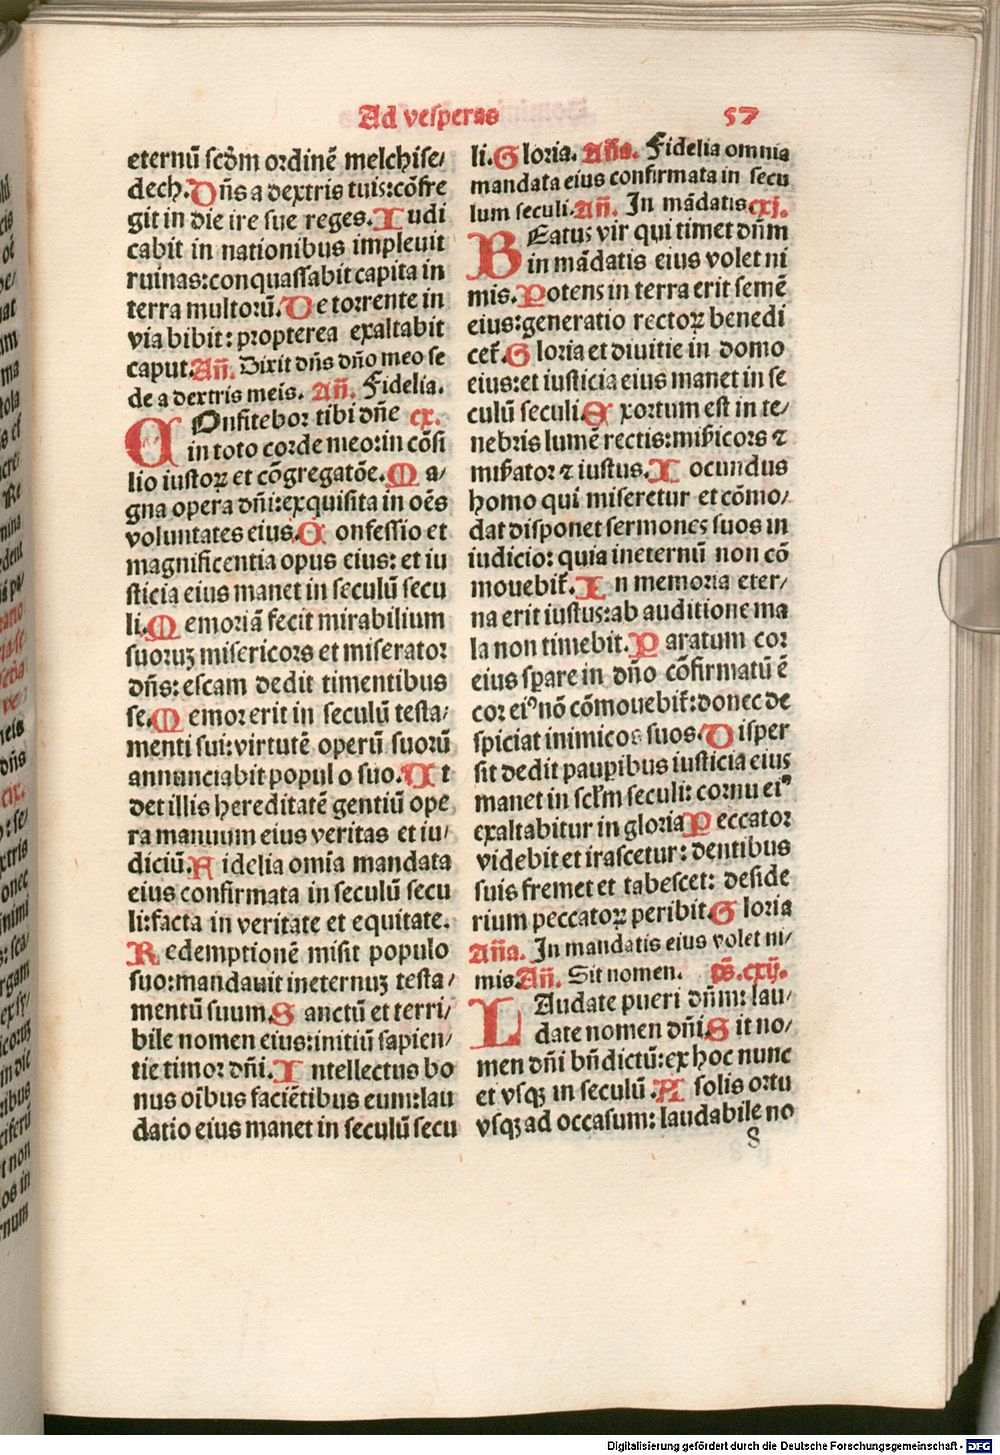 Ad vesperas 57
eternū scdm ordinē melchise/
dech. Dn̄s a dextris tuis: cōfre
git in die ire sue reges. Iudi
cabit in nationibus impleuit
ruinas: conquassabit capita in
terra multorū. De torrente in
via bibit: propterea exaltabit
caput. Añ. Dixit dn̄s dn̄o meo se
de a dextris meis. Añ. Fidelia.
COnfitebor tibi dn̄e cx.
in toto corde meo: in cōsi
lio iustoꝝ et cōgregatōe. Ma-
gna opera dn̄i: exquisita in oēs
voluntates eius. Confessio et
magnificentia opus eius: et iu
sticia eius manet in seculū secu
li. Memoriā fecit mirabilium
suoruꝫ misericors et miserator
dn̄s: escam dedit timentibus
se. Memor erit in seculū testa-
menti sui: virtutē operū suorū
annunciabit popul o suo. Ut
det illis hereditatē gentiū ope
ra manuum eius veritas et iu/
diciū. Fidelia omīa mandata
eius confirmata in seculū secu
li: facta in veritate et equitate.
Redemptionē misit populo
suo: mandauit ineternuꝫ testa/
mentū suum. Sanctū et terri/
bile nomen eius: initiū sapien/
tie timor dn̄i. Intellectus bo
nus oībus faciētibus eum: lau
datio eius manet in seculū secu
li. Gloria. Añа. Fidelia omnia
mandata eius confirmata in secu
lum seculi. Añ. In mādatis cxj.
BEatus vir qui timet dn̄m
in mādatis eius volet ni
mis. Potens in terra erit semē
eius: generatio rectoꝝ benedi
cet̄. Gloria et diuitie in domo
eius: et iusticia eius manet in se
culū seculi. Exortum est in te/
nebris lumē rectis: miẜicors ⁊
miẜ̄ator ⁊ iustus. Iocundus
homo qui miseretur et cōmo/
dat disponet sermones suos in
iudicio: quia ineternū non cō
mouebit̄. In memoria eter/
na erit iustus: ab auditione ma
la non timebit. Paratum cor
eius sꝑare in dn̄o cōfirmatū ē
cor ei⁹ nō cōmouebit̄: donec de
spiciat inimicos suos. Disper
sit dedit pauꝑibus iusticia eius
manet in secl̄m seculi: cornu ei⁹
exaltabitur in gloria Peccator
videbit et irascetur: dentibus
suis fremet et tabescet: deside
rium peccatoꝝ peribit. Gloria
Añа. In mandatis eius volet ni/
mis. Añ. Sit nomen. ps̄. cxij.
LAudate pueri dn̄m: lau/
date nomen dn̄i Sit no/
men dn̄i bn̄dictū: ex hoc nunc
et vsqꝫ in seculū. A solis ortu
vsqꝫ ad occasum: laudabile no
8
Digitalisierung gefördert durch die Deutsche Forschungsgemeinschaft - DFG